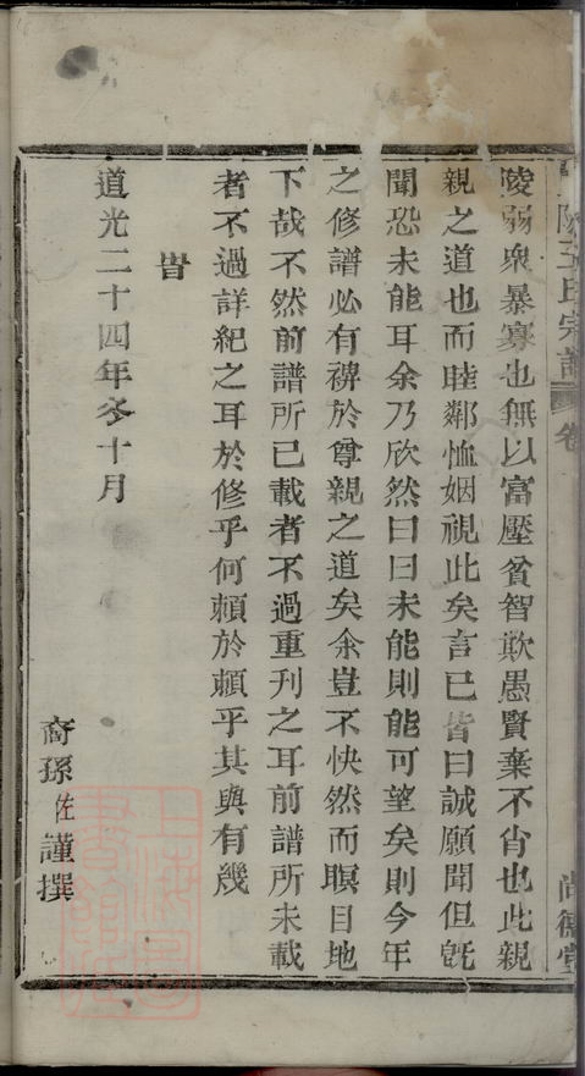 氏宗譜 卷
尚德堂
陵弱衆暴寡也無以富壓貧智欺愚賢棄不肖也此親
親之道也而睦鄰恤姻視此矣言已皆曰誠願聞但旣
聞恐未能耳余乃欣然曰曰未能則能可望矣則今年
之修譜必有裨於尊親之道矣余豈不快然而瞑目地
下哉不然前譜所已載者不過重刊之耳前譜所未載
者不過詳紀之耳於修乎何賴於賴乎其與有幾
旹
道光二十四年冬十月
裔孫佐謹撰
上海圖書館藏